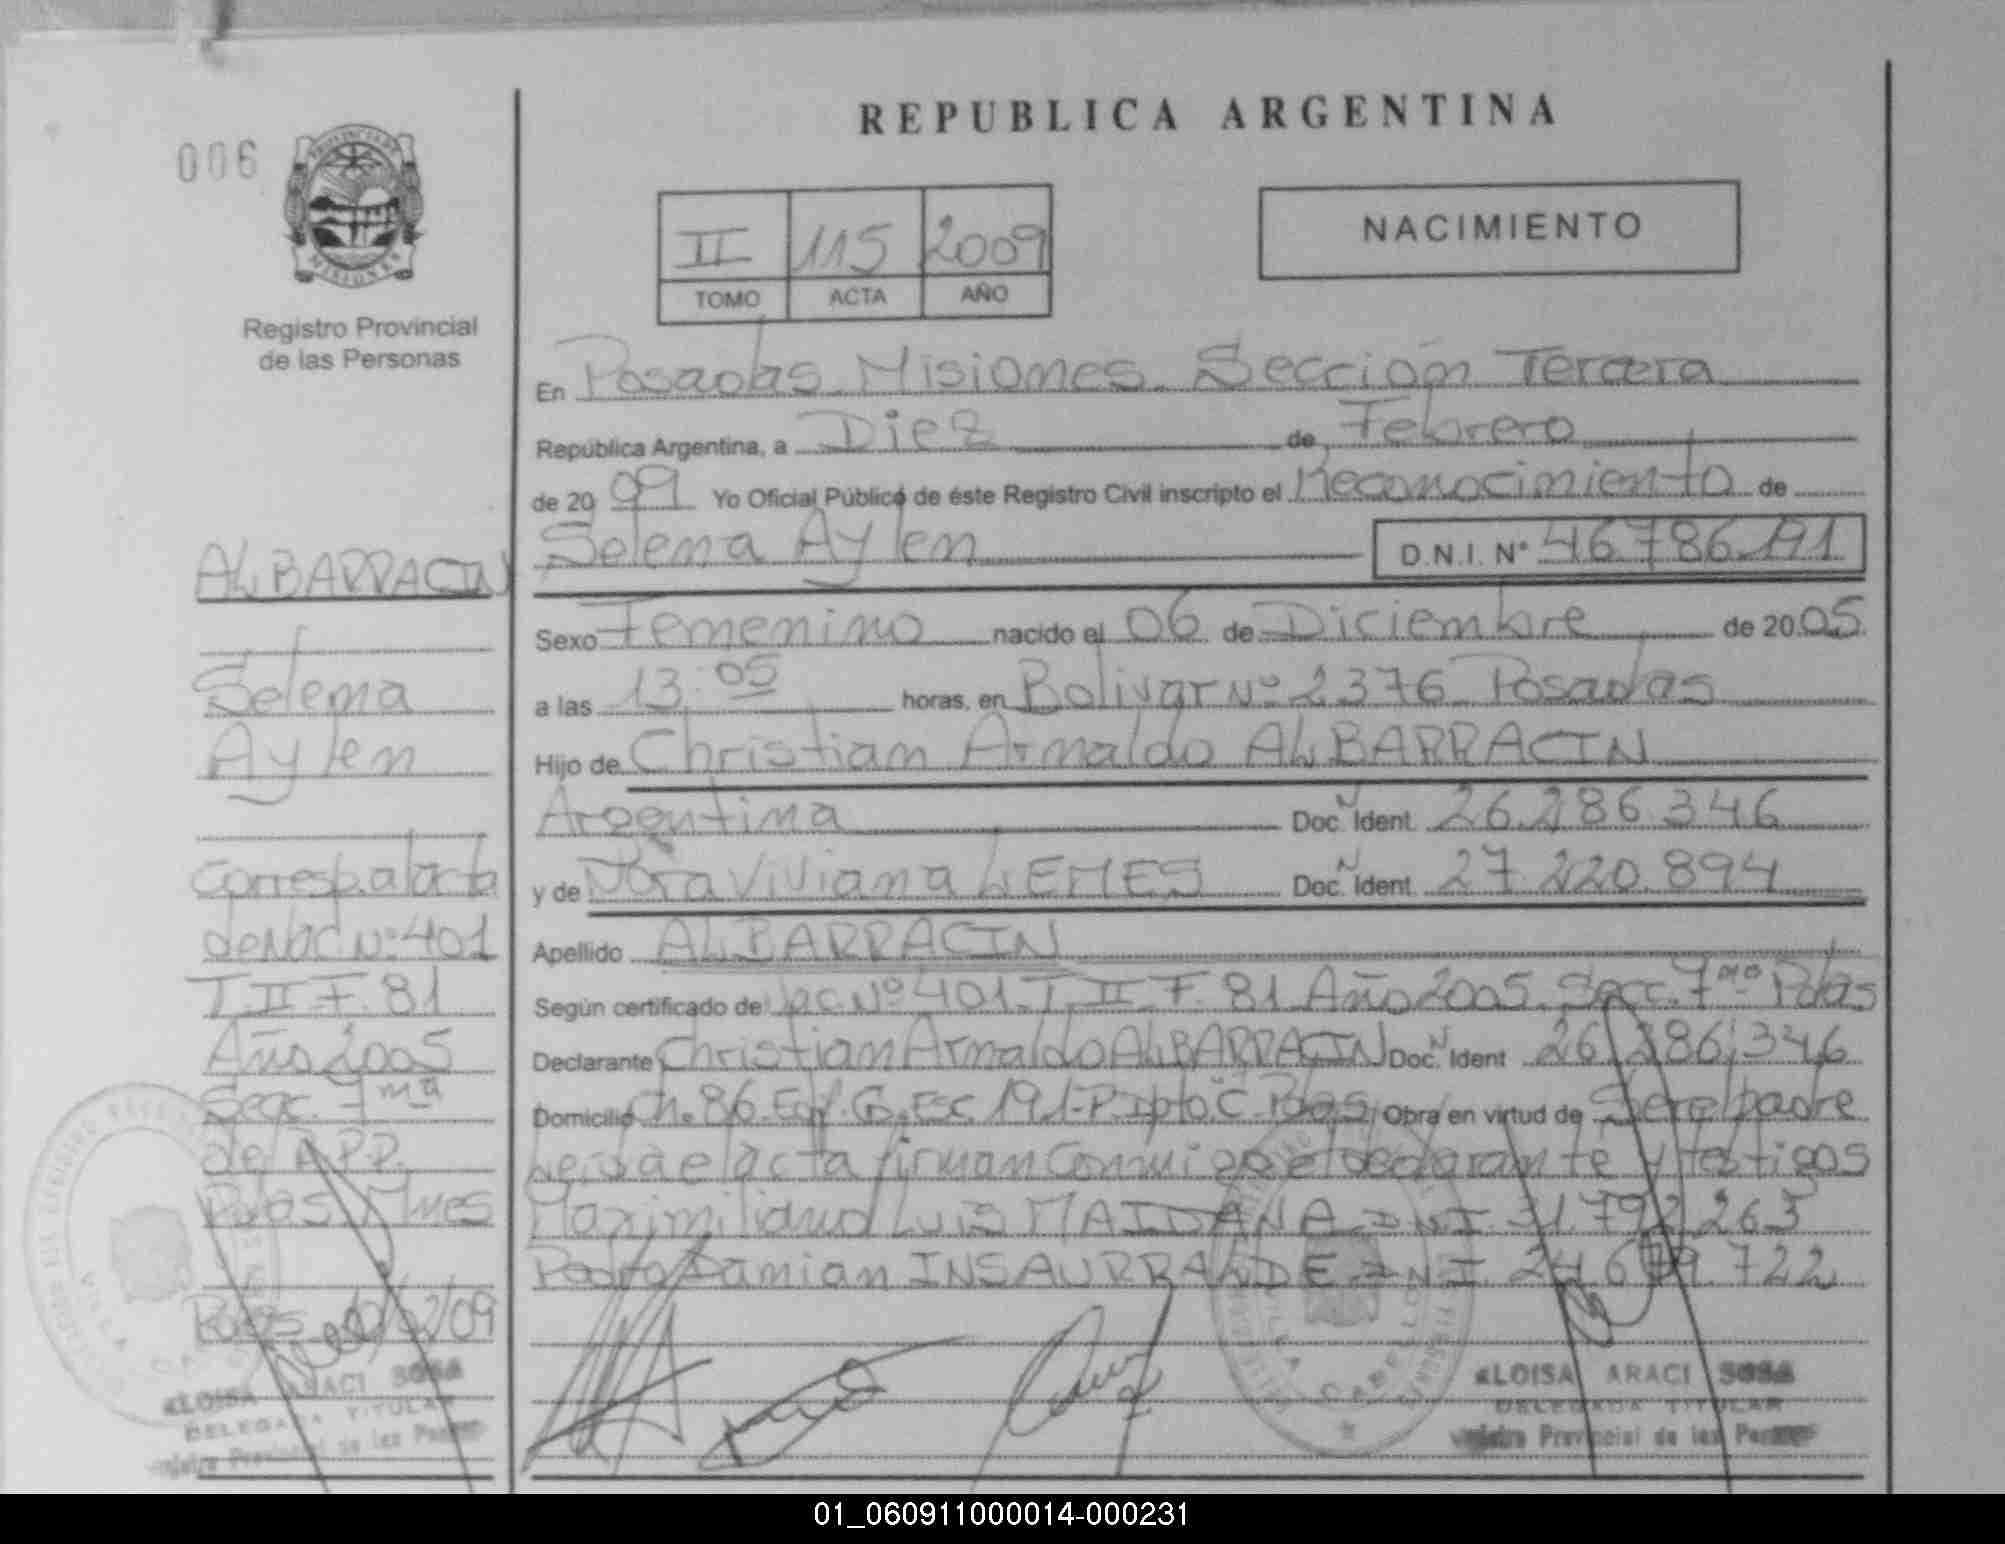 REPUBLICA ARGENTINA
006
PROVINCIA DE
MISIONES
Registro Provincial
de las Personas
II 115 2009
TOMO ACTA AÑO
NACIMIENTO
En Posadas Misiones Sección Tercera
República Argentina, a Diez de Febrero
de 2009 Yo Oficial Público de éste Registro Civil inscripto el Reconocimiento de
Selena Aylen D.N.I. N° 46.786.191
Sexo Femenino nacido el 06 de Diciembre de 2005
a las 13:05 horas, en Bolivar N° 2376 Posadas
Hijo de Christian Arnaldo ALBARRACIN
Argentina Doc. Ident. 26.286.346
y de Nora Viviana LEMES Doc. Ident. 27.220.894
Apellido ALBARRACIN
Según certificado de Nac. N° 401 T. II F. 81 Año 2005. Secc. 7ma Pdas
Declarante Christian Arnaldo ALBARRACIN Doc. Ident 26.286.346
Domicilio Ch. 86. Edf. Esc. 191-P. Dpto. C. Pdas Obra en virtud de Ser el padre
Leida el acta firman Conmigo el declarante y testigos
Maximiliano Luis MAIDANA DNI. 31.792.263
Pedro Damian INSAURRALDE DNI. 24.679.722
ALBARRACIN
Selena
Aylen
Corresp. al acta
de Nac. N° 401
T. II F. 81
Año 2005
Secc. 7ma
del R.P.P.
Pdas. Mnes
Pdas. 10/02/09
ELOISA ARACI SOSA
DELEGADA TITULAR
Registro Provincial de las Personas
VILLA CABELLO
ELOISA ARACI SOSA
DELEGADA TITULAR
Registro Provincial de las Personas
01_060911000014-000231